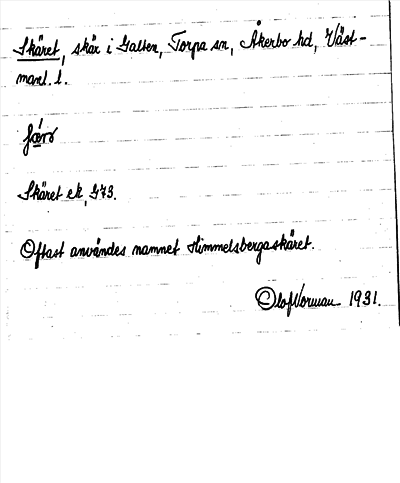 Skäret, skär i Galten, Torpa sn, Åkerbo hd, Väst-
manl. l.
Skäret ek, G73.
Oftast användes namnet Himmelsbergaskäret.
Olof Norman 1931.